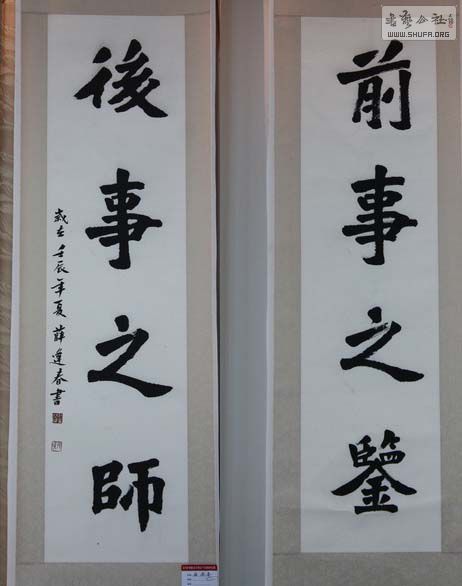 前事之鑒
後事之師
歲在壬辰年夏薛逢春書
書藝公社
WWW.SHUFA.ORG